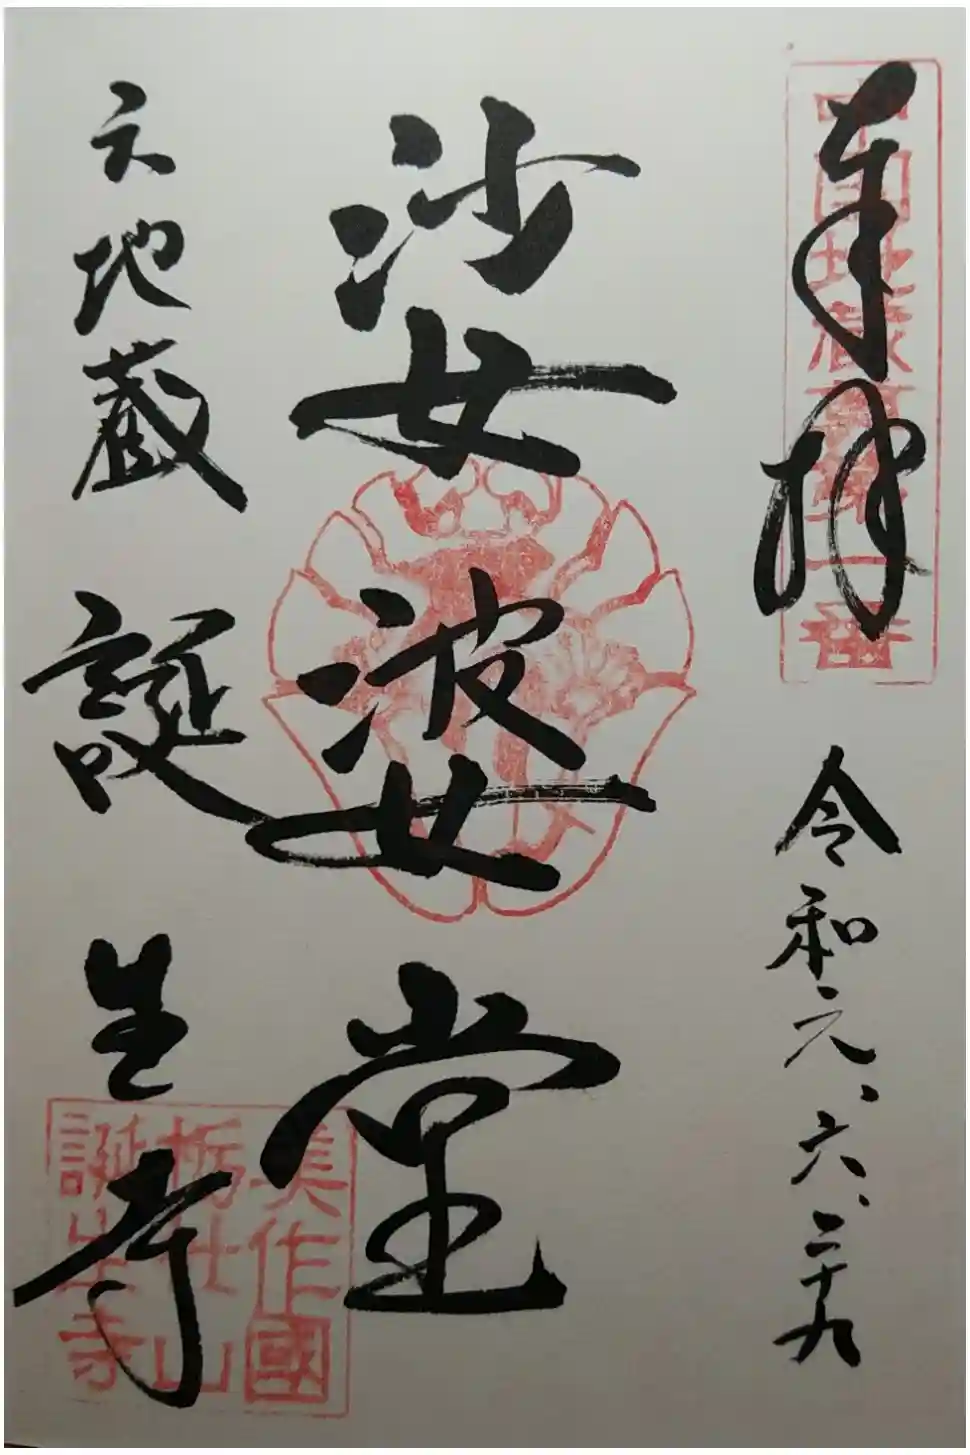 奉拝
令和元、六、二十九
娑婆堂
六地蔵 誕生寺
美作國
栃社山
誕生寺